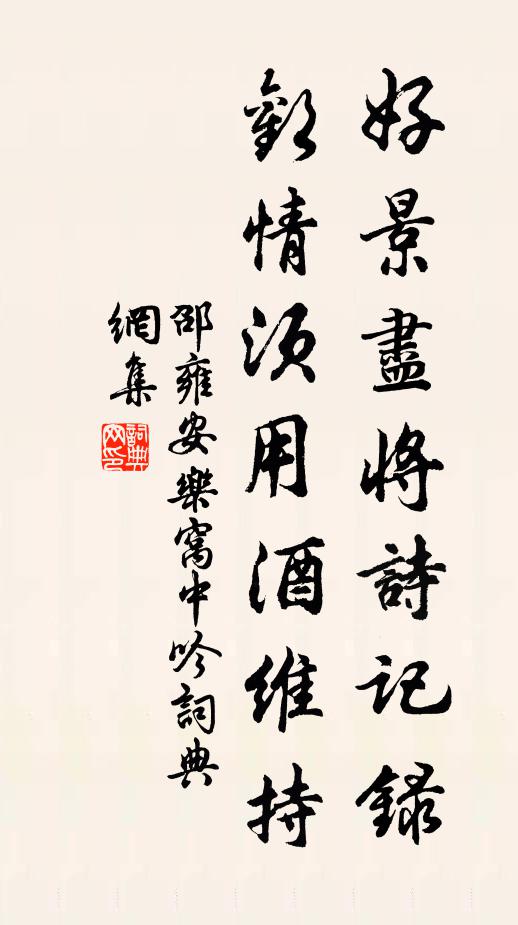 好景盡將詩記錄
歡情須用酒維持
邵雍安樂窩中吟詞典
網集
詞典
网印